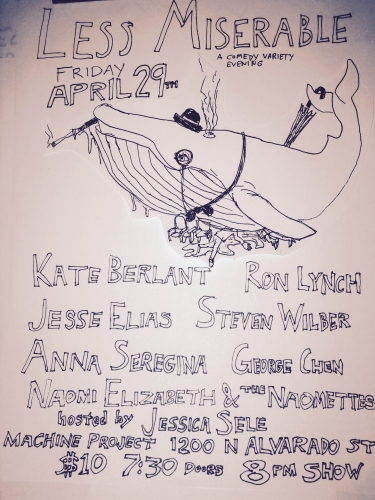 LESS MISERABLE
A COMEDY VARIETY
EVENING
FRIDAY
APRIL 29TH
KATE BERLANT RON LYNCH
JESSE ELIAS STEVEN WILBER
ANNA SEREGINA GEORGE CHEN
NAOMI ELIZABETH & THE NAOMETTES
hosted by JESSICA SELE
MACHINE PROJECT 1200 N ALVARADO ST
$10 7:30 DOORS 8PM SHOW